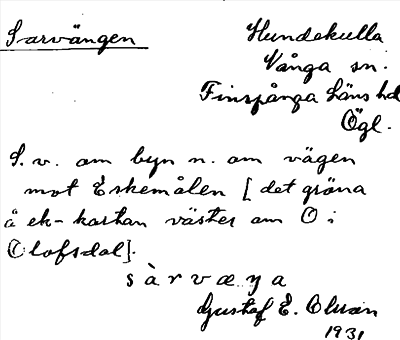 Sarvängen
Hundekulla
Vånga sn.
Finspånga Läns hd
Ögl.
S. v. om byn n. om vägen
mot Eskemålen [det gröna
å ek-kartan väster om O i
Olofsdal].
Gustaf E. Olson
1931